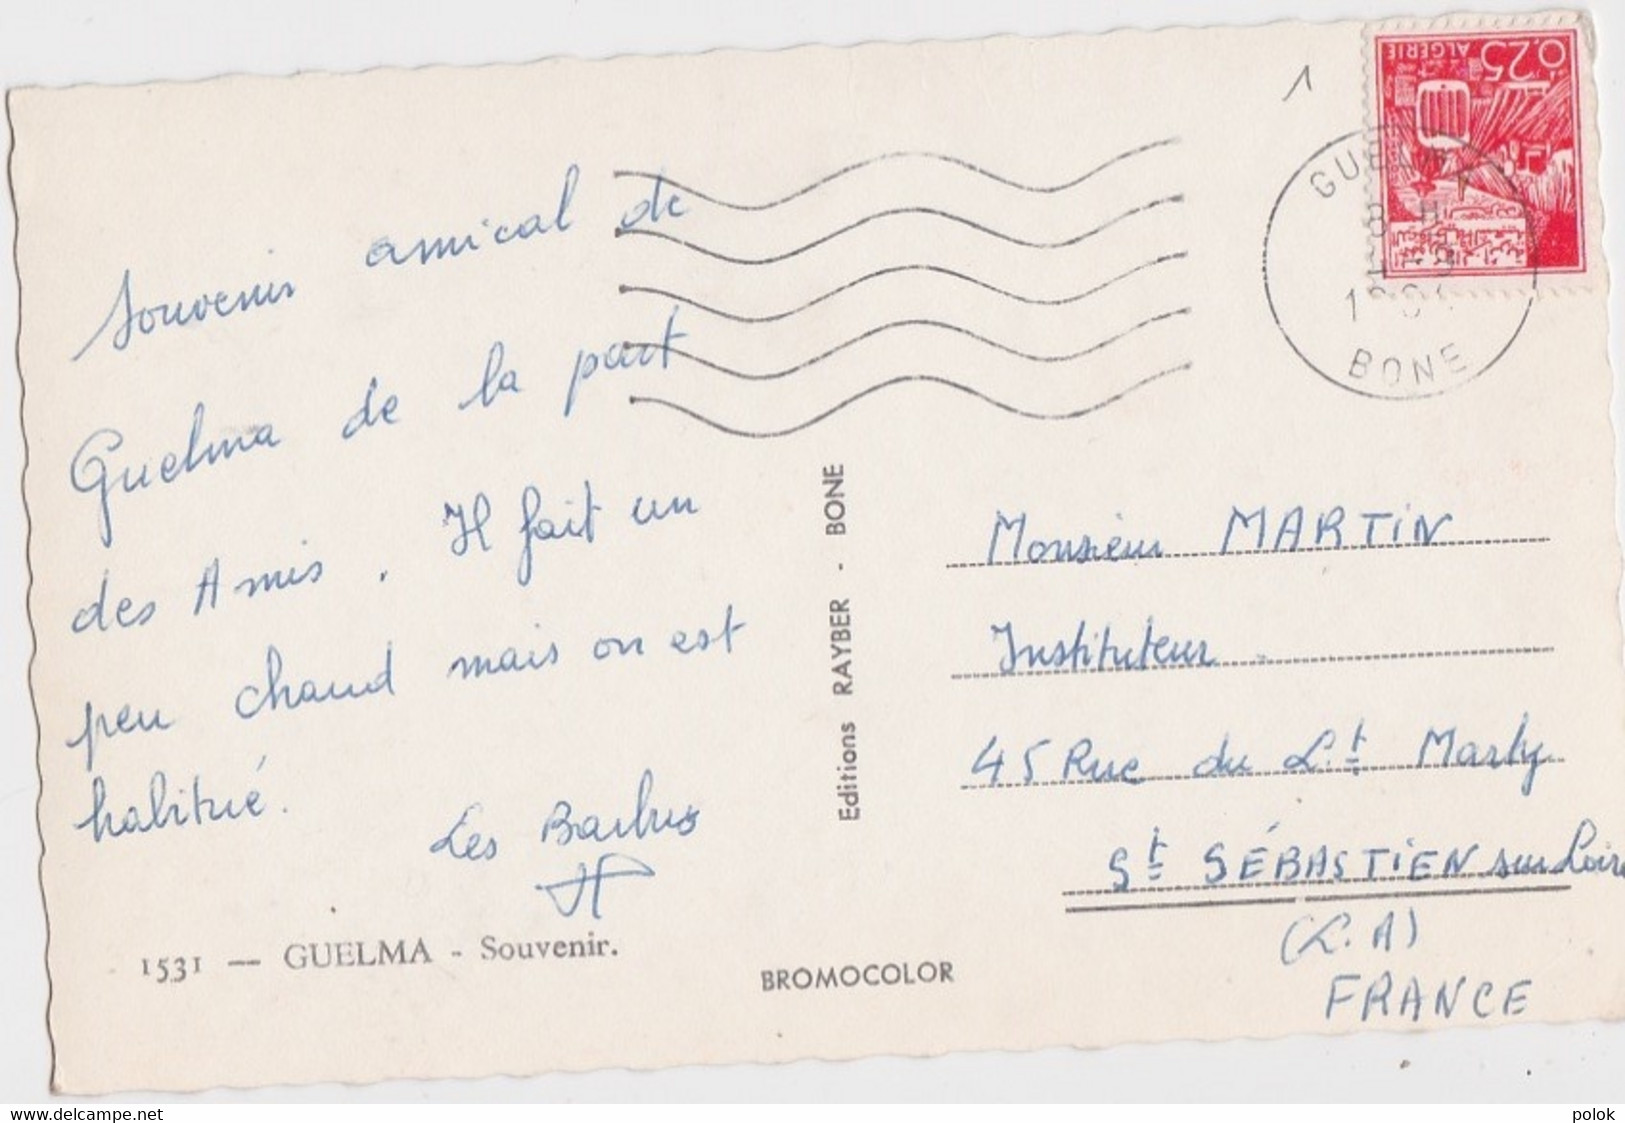 Souvenir amical de
Guelma de la part
des Amis. Il fait un
peu chaud mais on est
habitué.
Les Barbus
1531 — GUELMA - Souvenir.
Editions RAYBER - BONE
BROMOCOLOR
0,25
ALGERIE
GUELMA
BONE
Monsieur MARTIN
Instituteur
45 Rue du Lt Marty
St SÉBASTIEN sur Loire
(L.A)
FRANCE
www.delcampe.net
polok